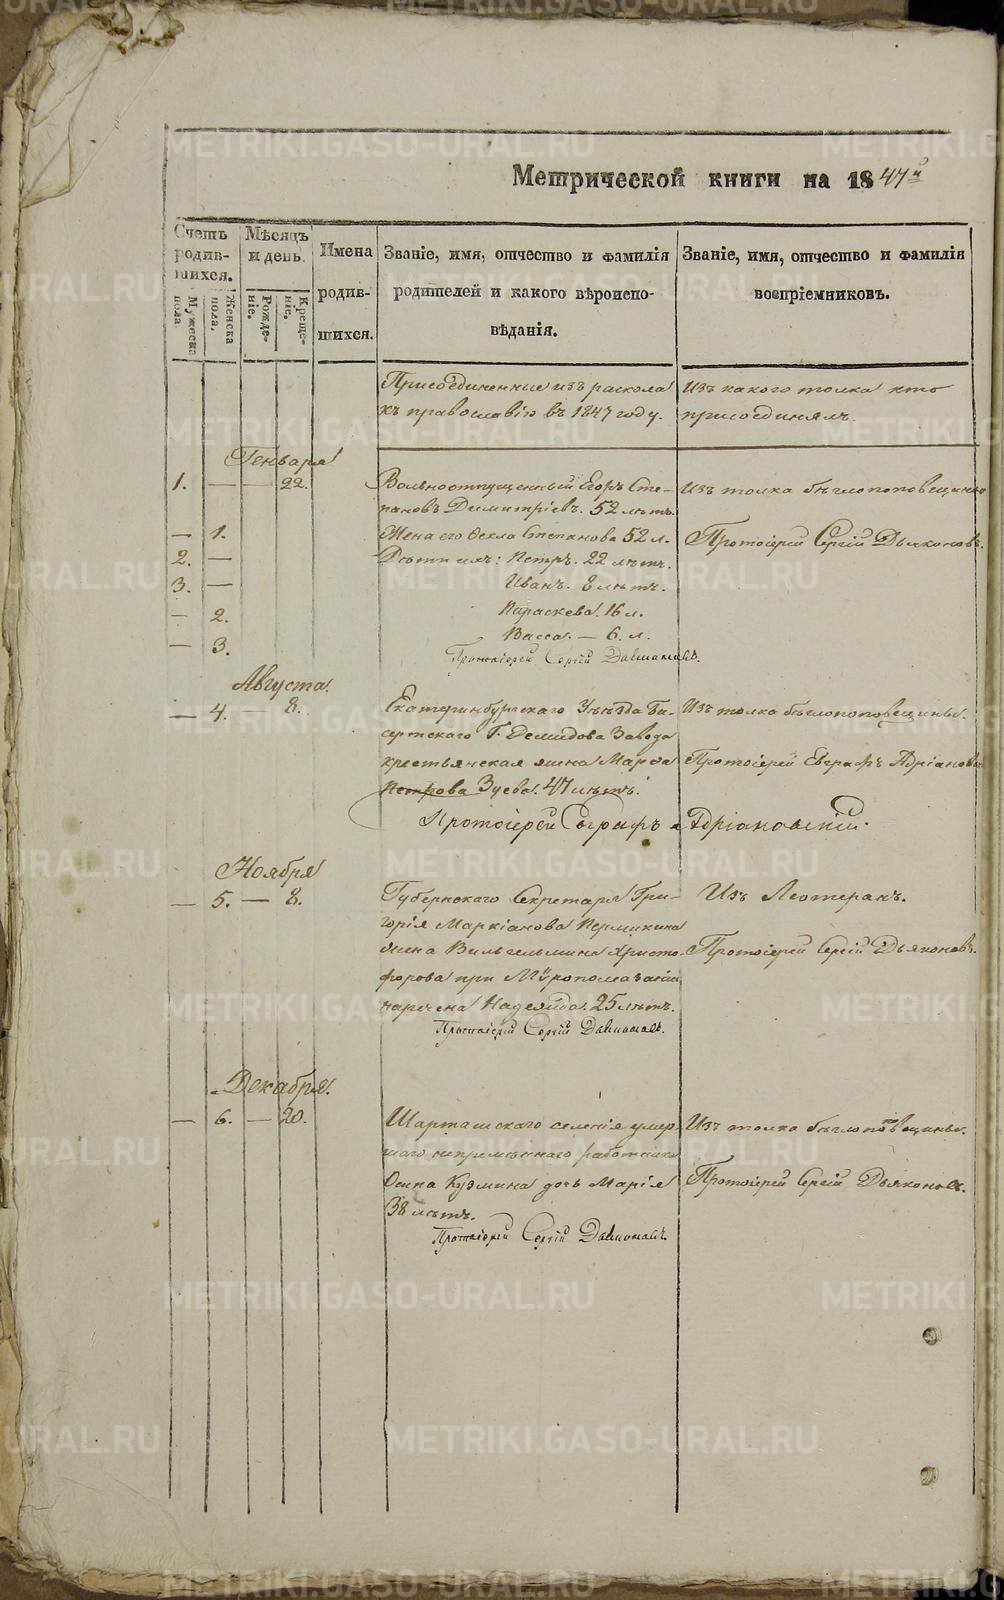 Метрической книги на 1847й
Счетъ родившихся.
Мужеска пола.
Женска пола.
Мѣсяцъ и день.
Рожденіе.
Крещеніе.
Имена родившихся.
Званіе, имя, отчество и фамилія
родителей и какого вѣроиспо-
вѣданія.
Званіе, имя, отчество и фамилія
воспріемниковъ.
Присоединенные изъ раскола
къ православію въ 1847 году.
Изъ какого толка кто
присоединялъ.
Генваря
1. — — 22. Вольноотпущенный Егоръ Сте-
пановъ Димитріевъ. 52 лѣтъ.
Изъ толка бѣглопоповщины
— 1. Жена его Фекла Степанова 52 л.
Протоіерей Сергій Дьяконовъ.
2. — Дѣти ихъ: Петръ. 22 лѣтъ.
3. — Иванъ. 8 лѣтъ.
— 2. Параскева. 16 л.
— 3. Васса. — 6. л.
Протоіерей Сергій Дьяконовъ.
Августа.
— 4. — 8. Екатеринбургскаго Уѣзда Би-
сертскаго Г. Демидова Завода
крестьянская жена Марѳа
Петрова Зуева. 47 лѣтъ.
Изъ толка бѣглопоповщины.
Протоіерей Евграфъ Адріановъ
Протоіерей Евграфъ Адріановскій.
Ноября
— 5. — 8. Губернскаго Секретаря Гри-
горія Маркіанова Пермикина
жена Вильгельмина Христо-
форова при Мѵропомазаніи
наречена Надежда. 25 лѣтъ.
Изъ Лютеранъ.
Протоіерей Сергій Дьяконовъ.
Протоіерей Сергій Дьяконовъ.
Декабря.
— 6. — 20. Шарташскаго селенія умер-
шаго непремѣннаго работника
Осипа Кузмина дочь Марія
38 лѣтъ.
Изъ толка бѣглопоповщины.
Протоіерей Сергій Дьяконовъ.
Протоіерей Сергій Дьяконовъ.
METRIKI.GASO-URAL.RU